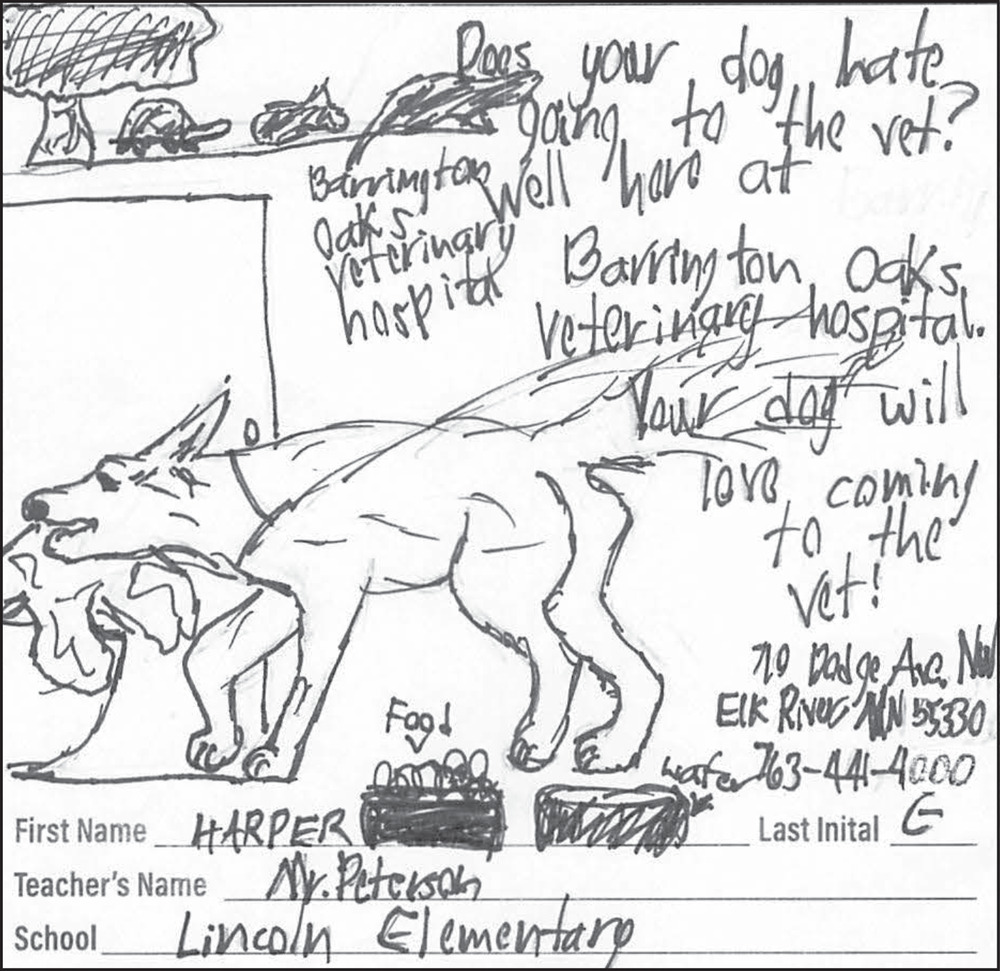 Does your dog hate
going to the vet?
Well here at
Barrington Oaks
veterinary hospital.
Your dog will
love coming
to the
vet!
Barrington
Oaks
veterinary
hospital
710 Dodge Ave. NW
Elk River MN 55330
763-441-4000
Food
water
First Name HARPER Last Inital E
Teacher's Name Mr. Peterson
School Lincoln Elementary